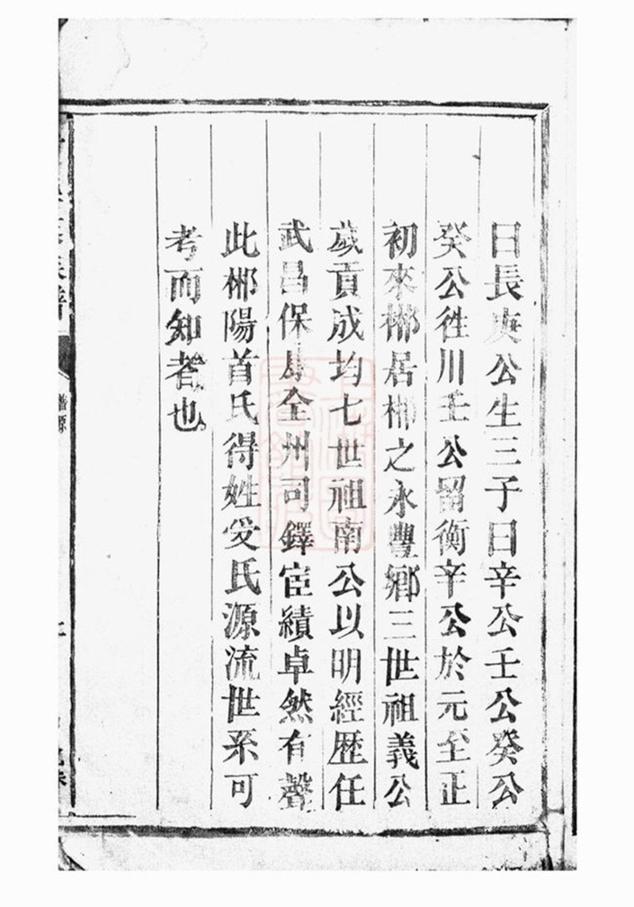 曰長庚公生三子曰辛公壬公癸公
癸公徃川壬公留衡辛公於元至正
初來郴居郴之永豐鄉三世祖義公
歲貢成均七世祖南公以明經歴任
武昌保昌全州司鐸宦績卓然有聲
此郴陽首氏得姓受氏源流世系可
考而知者也
譜源